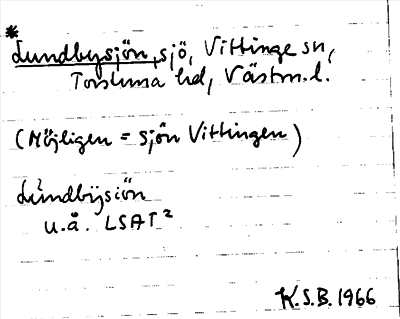 * Lundbysjön, sjö, Vittinge sn,
Torstuna hd, Västm. l.
(Möjligen = sjön Vittingen)
Lundbÿsiön
u.å. LSAT²
K.S.B. 1966